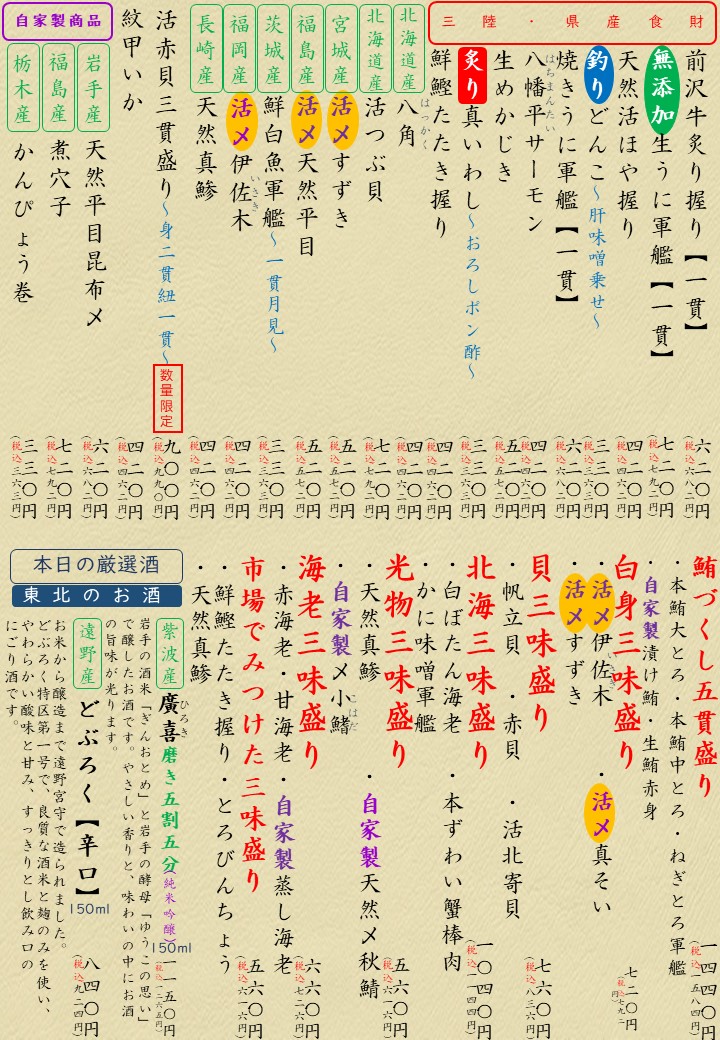 三陸・県産食財
前沢牛炙り握り【一貫】
六二〇円
(税込六八二円)
無添加生うに軍艦【一貫】
七二〇円
(税込七九二円)
天然活ほや握り
四二〇円
(税込四六二円)
釣りどんこ～肝味噌乗せ～
三三〇円
(税込三六三円)
焼きうに軍艦【一貫】
六二〇円
(税込六八二円)
八幡平サーモン
はちまんたい
四二〇円
(税込四六二円)
生めかじき
五二〇円
(税込五七二円)
炙り真いわし～おろしポン酢～
三三〇円
(税込三六三円)
鮮鰹たたき握り
四二〇円
(税込四六二円)
北海道産
八角
はっかく
四二〇円
(税込四六二円)
北海道産
活つぶ貝
七二〇円
(税込七九二円)
宮城産
活〆すずき
五二〇円
(税込五七二円)
福島産
活〆天然平目
五二〇円
(税込五七二円)
茨城産
鮮白魚軍艦～一貫月見～
三三〇円
(税込三六三円)
福岡産
活〆伊佐木
いさき
四二〇円
(税込四六二円)
長崎産
天然真鯵
四二〇円
(税込四六二円)
活赤貝三貫盛り～身二貫紐一貫～
数量限定
九〇〇円
(税込九九〇円)
紋甲いか
四二〇円
(税込四六二円)
自家製商品
岩手産
天然平目昆布〆
六二〇円
(税込六八二円)
福島産
煮穴子
七二〇円
(税込七九二円)
栃木産
かんぴょう巻
三三〇円
(税込三六三円)
鮪づくし五貫盛り
・本鮪大とろ・本鮪中とろ・ねぎとろ軍艦
・自家製漬け鮪・生鮪赤身
一四四〇円
(税込一五八四円)
白身三味盛り
・活〆伊佐木 ・活〆真そい
いさき
・活〆すずき
七二〇円
(税込七九二円)
貝三味盛り
・帆立貝 ・赤貝 ・活北寄貝
七六〇円
(税込八三六円)
北海三味盛り
・白ぼたん海老 ・本ずわい蟹棒肉
・かに味噌軍艦
一〇四〇円
(税込一一四四円)
光物三味盛り
・天然真鯵 ・自家製天然〆秋鯖
・自家製〆小鰭
こはだ
五六〇円
(税込六一六円)
海老三味盛り
・赤海老・甘海老・自家製蒸し海老
六六〇円
(税込七二六円)
市場でみつけた三味盛り
・鮮鰹たたき握り・とろびんちょう
・天然真鯵
五六〇円
(税込六一六円)
本日の厳選酒
東北のお酒
紫波産
廣喜磨き五割五分(純米吟醸)
ひろき
150ml
一一五〇円
(税込一二六五円)
岩手の酒米「ぎんおとめ」と岩手の酵母「ゆうこの思い」
で醸したお酒です。やさしい香りと、味わいの中にお酒
の旨味が光ります。
遠野産
どぶろく【辛口】
150ml
八四〇円
(税込九二四円)
お米から醸造まで遠野宮守で造られました。
どぶろく特区第一号で、良質な酒米と麹のみを使い、
やわらかい酸味と甘み、すっきりとし飲み口の
にごり酒です。